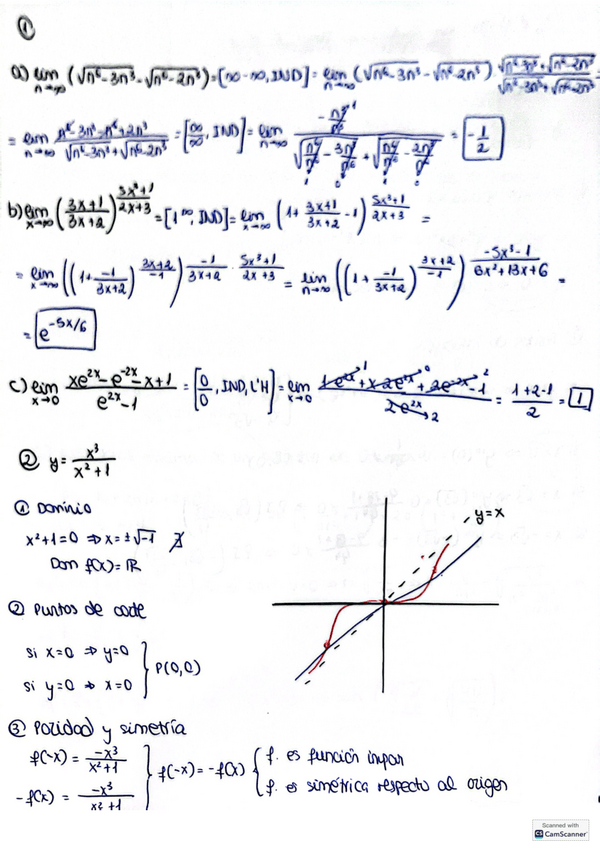 ①
a) lim n→∞ (√n⁶-3n³ - √n⁶-2n³) = [∞-∞, IND] = lim n→∞ (√n⁶-3n³ - √n⁶-2n³) · √n⁶-3n³ + √n⁶-2n³ / √n⁶-3n³ + √n⁶-2n³ =
= lim n→∞ n⁶-3n³-n⁶+2n³ / √n⁶-3n³ + √n⁶-2n³ = [∞/∞, IND] = lim n→∞ = -1/2
b) lim x→∞ (3x+1 / 3x+2) = [1^∞, IND] = lim x→∞ (1 + 3x+1 / 3x+2 - 1)^(5x³+1 / 2x+3) =
= lim x→∞ ((1 + -1 / 3x+2)^(3x+2 / -1))^(-1 / 3x+2 · 5x³+1 / 2x+3) = lim n→∞ ((1 + -1 / 3x+2)^(3x+2 / -1))^(-5x³-1 / 6x²+13x+6) =
= e^(-5x/6)
c) lim x→0 xe^2x - e^-2x - x + 1 / e^2x - 1 = [0/0, IND, L'H] = lim x→0 1·e^2x + x·2e^2x + 2e^-2x - 1 / 2e^2x = 1+2-1 / 2 = 1
② y = x³ / x²+1
① Dominio
x²+1=0 ⇒ x=±√-1 ∄
Dom f(x)=ℝ
y=x
② Puntos de corte
si x=0 ⇒ y=0
si y=0 ⇒ x=0 } P(0,0)
③ Paridad y simetría
f(-x) = -x³ / x²+1
-f(x) = -x³ / x²+1 } f(-x) = -f(x) { f. es función impar
f. es simétrica respecto al origen
Scanned with
CS CamScanner